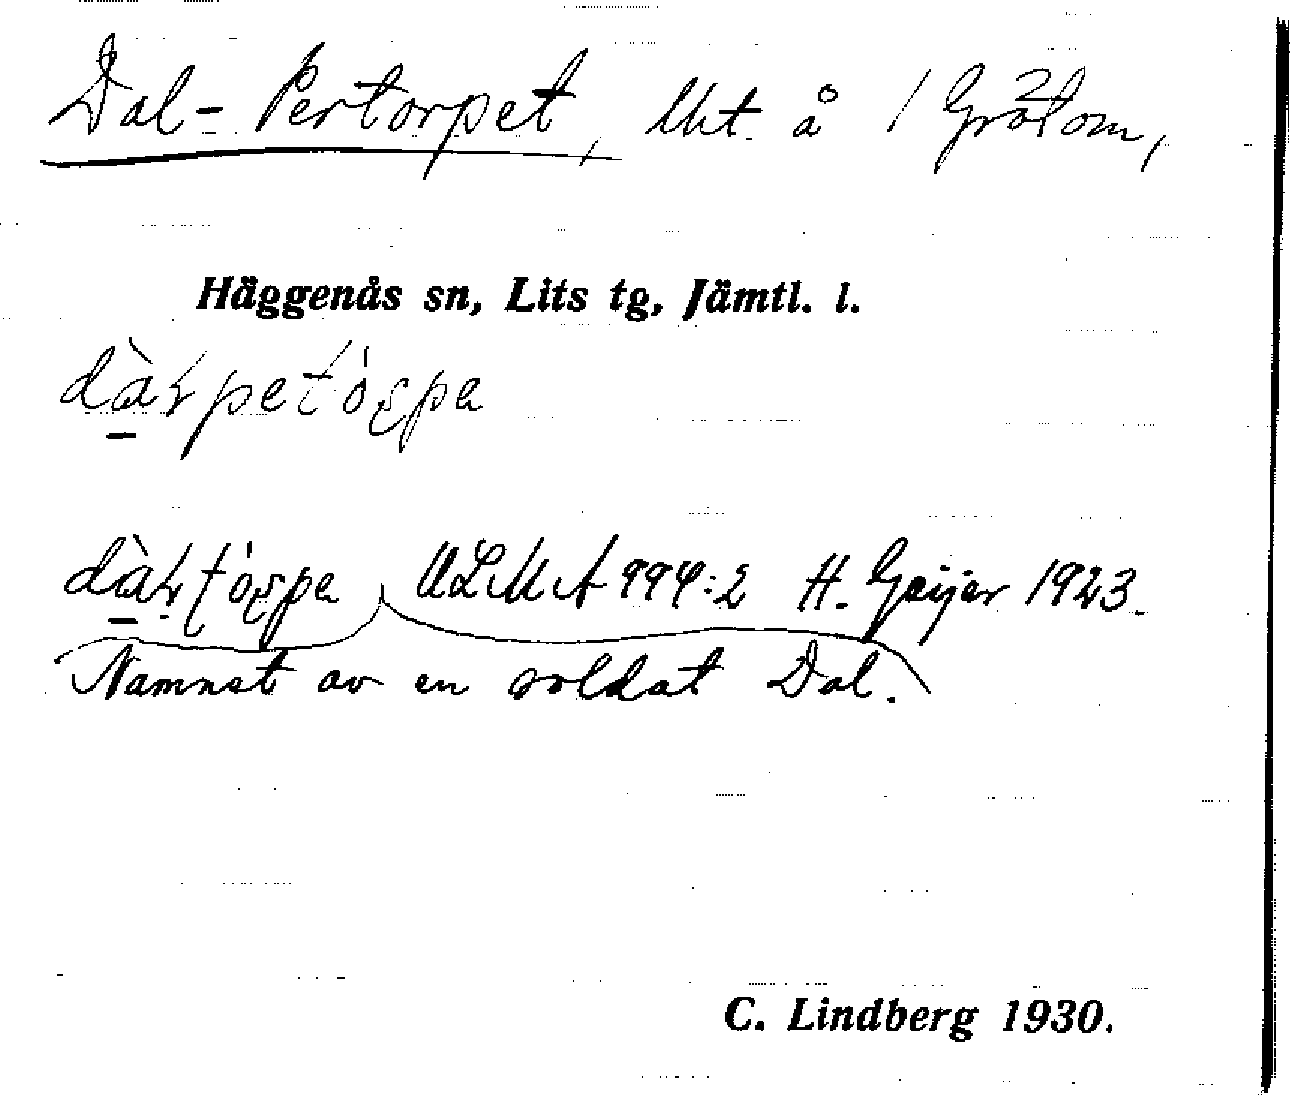 Dal-Pertorpet, lht å 1 Gråtom,
Häggenås sn, Lits tg, Jämtl. l.
ULMA 994:2 H. Geijer 1923.
Namnet av en soldat Dal.
C. Lindberg 1930.